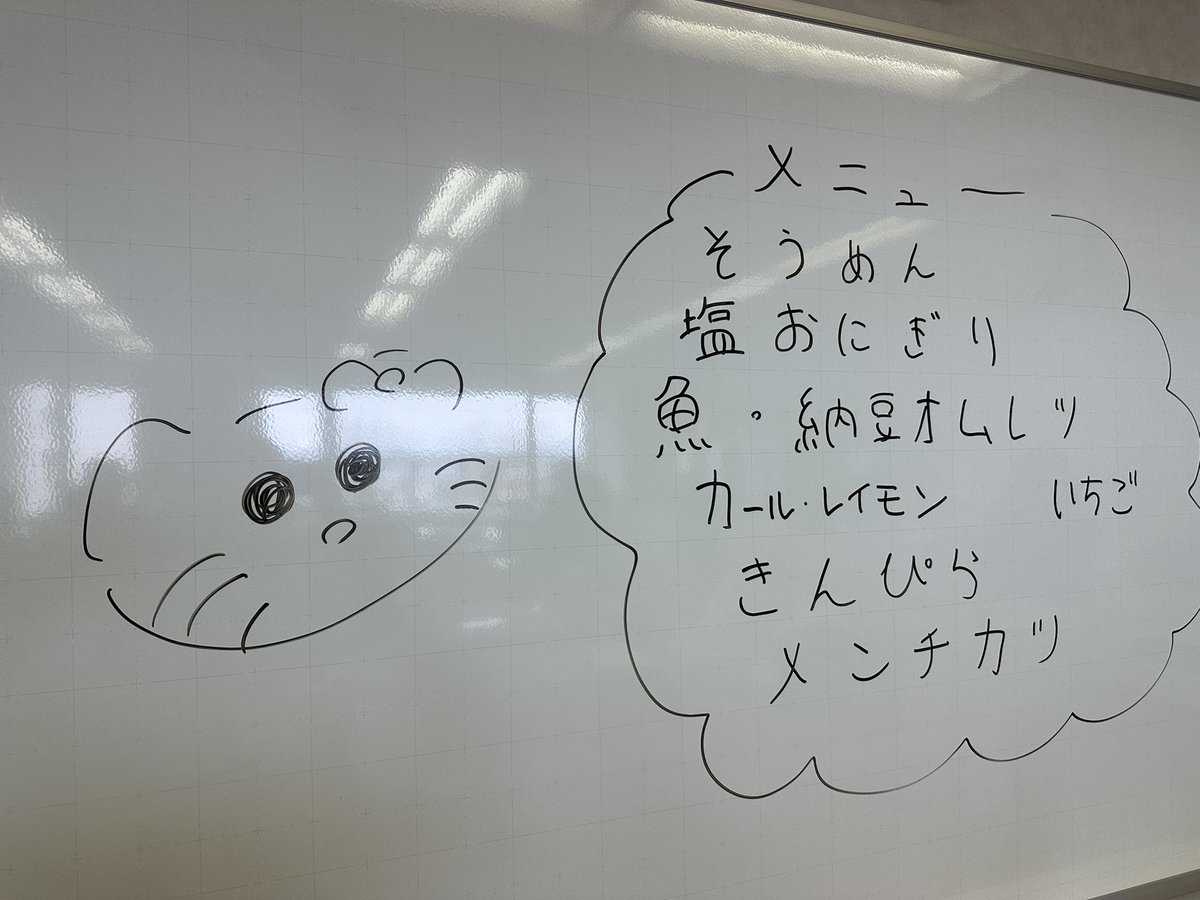 メニュー
そうめん
塩おにぎり
魚・納豆オムレツ
カール・レイモン　いちご
きんぴら
メンチカツ